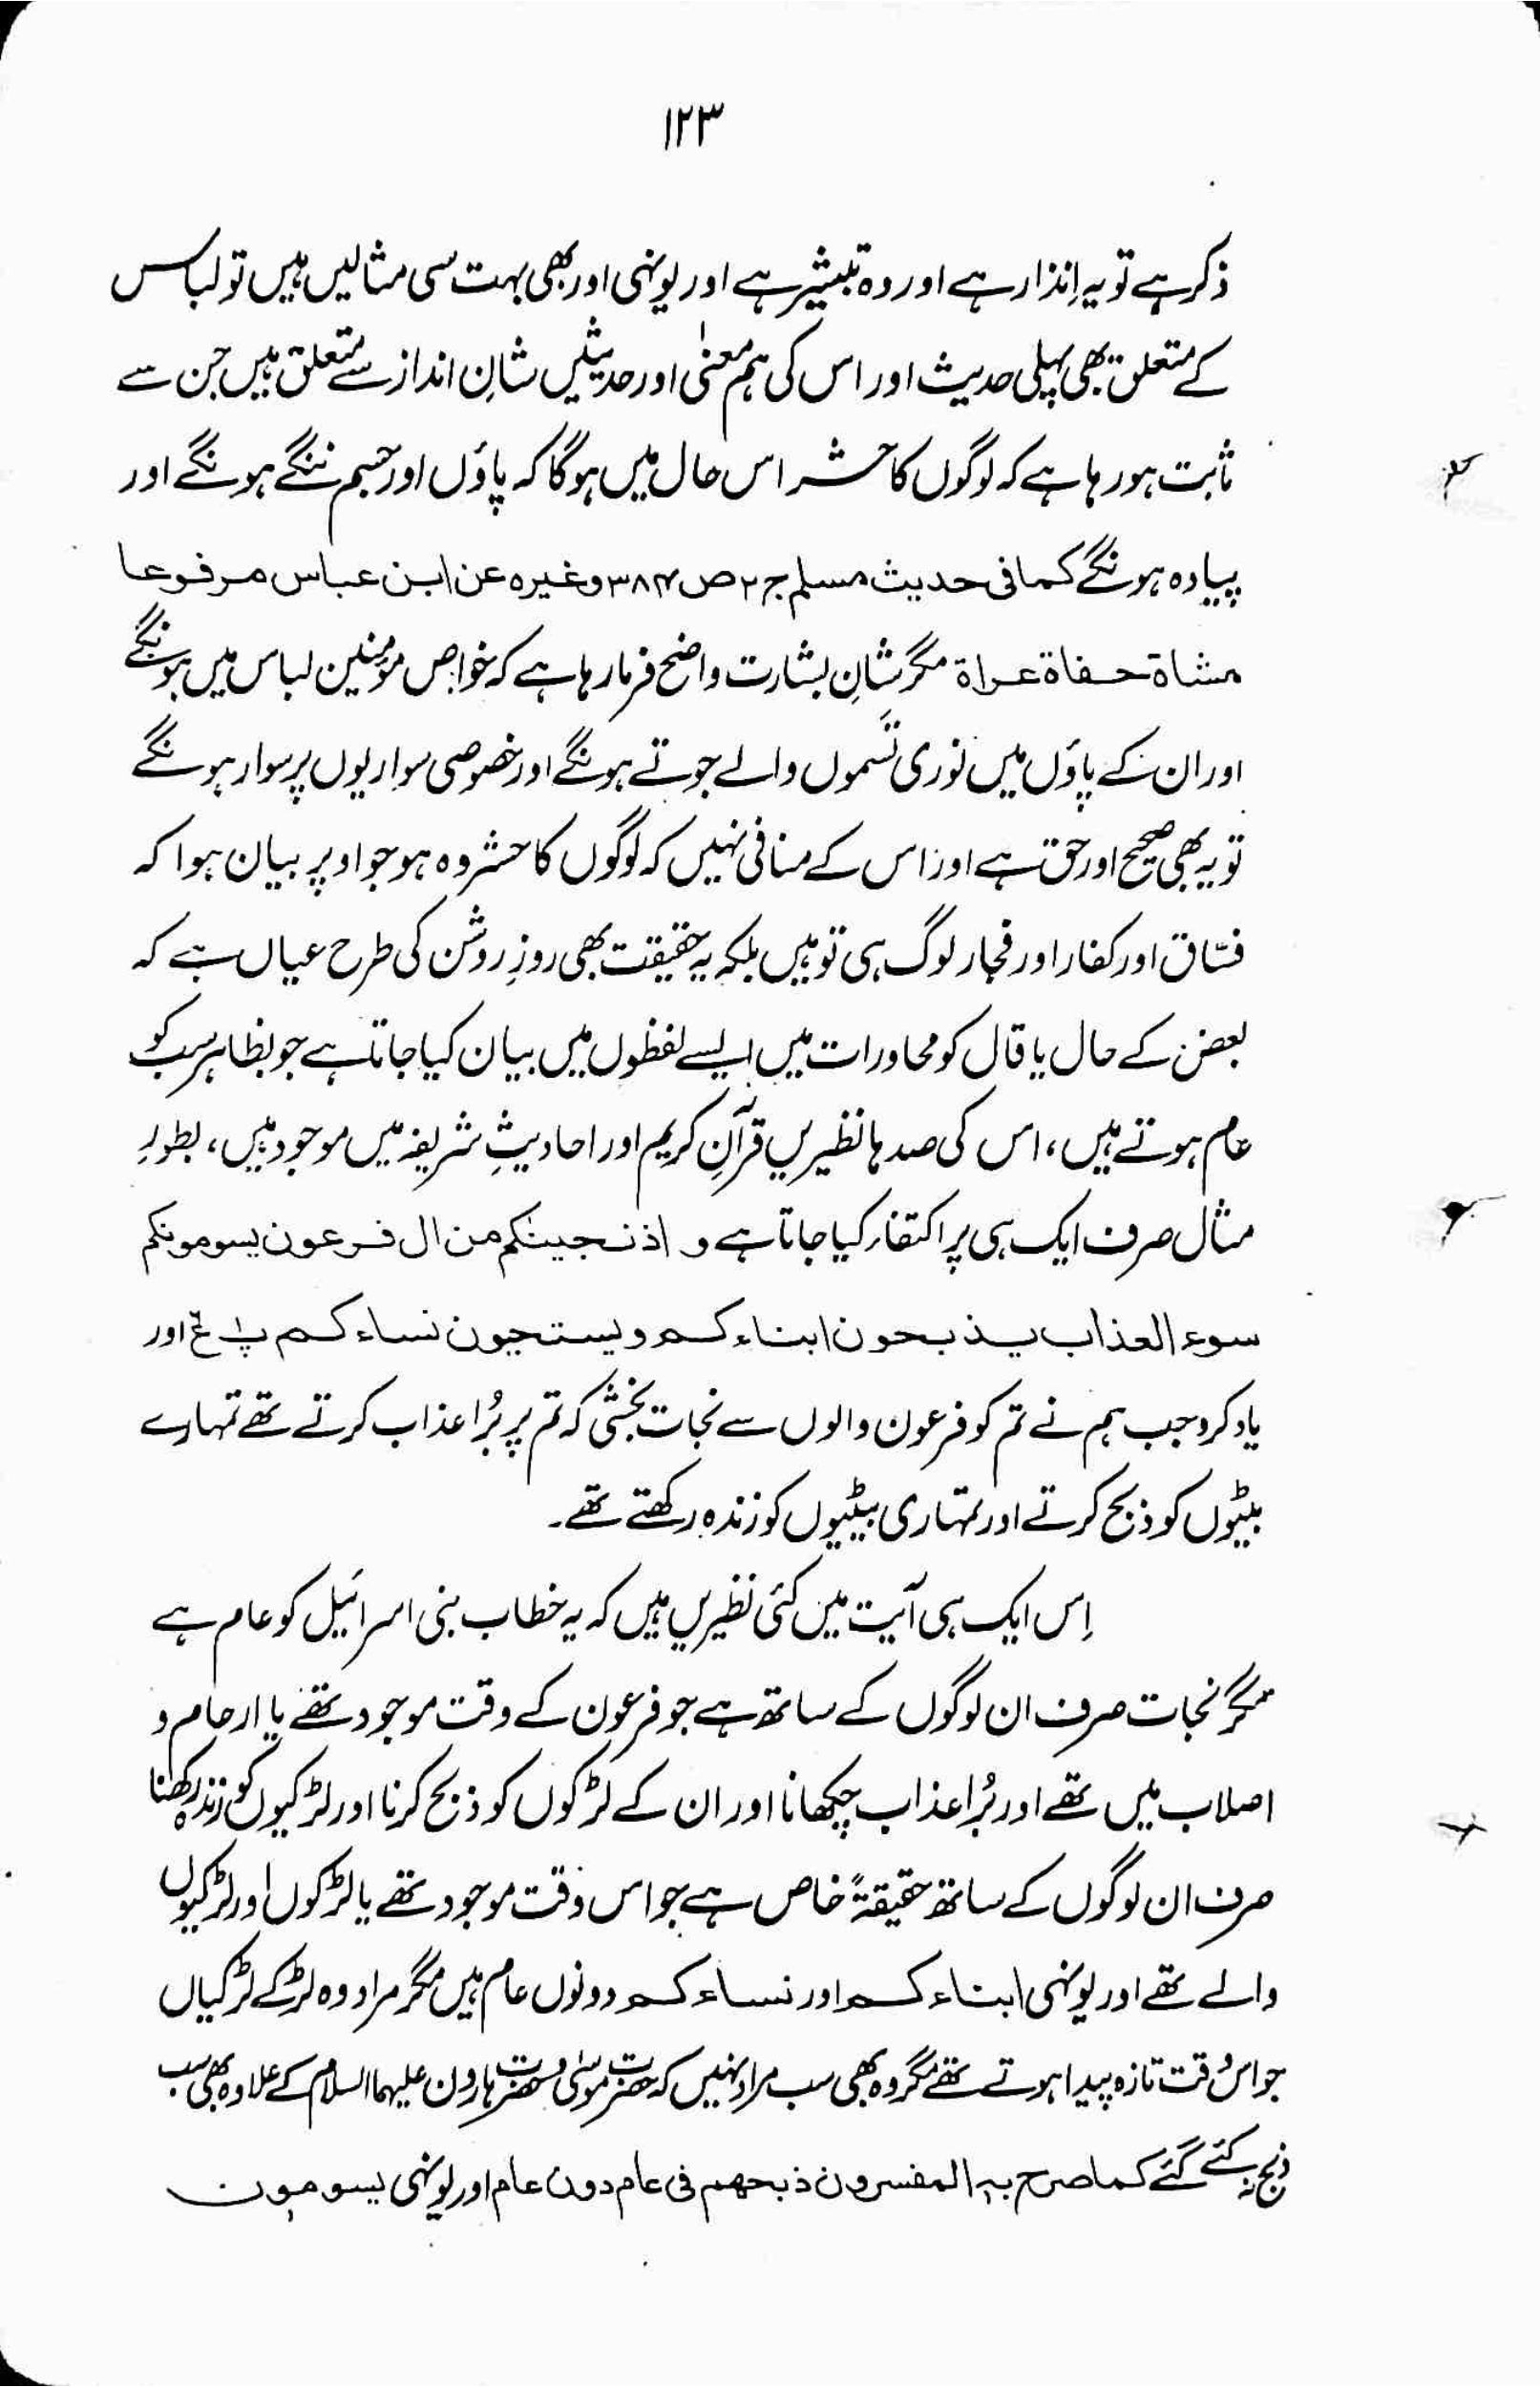 ۱۲۳
ذکر ہے تو یہ اِنذار ہے اور وہ تبشیر ہے اور یونہی اور بھی بہت سی مثالیں ہیں تو لباس
کے متعلق بھی پہلی حدیث اور اس کی ہم معنیٰ اور حدیثیں شانِ انداز سے متعلق ہیں جن سے
ثابت ہو رہا ہے کہ لوگوں کا حشر اس حال میں ہوگا کہ پاؤں اور جسم ننگے ہونگے اور
پیادہ ہونگے کما فی حدیث مسلم ج ۲ ص ۳۸۴ وغیرہ عن ابن عباس مرفوعا
مشاة حفاة عراة مگر شانِ بشارت واضح فرما رہا ہے کہ خواص مؤمنین لباس میں ہونگے
اور ان کے پاؤں میں نوری تَسموں والے جوتے ہونگے اور خصوصی سواریوں پر سوار ہونگے
تو یہ بھی صحیح اور حق ہے اور اس کے منافی نہیں کہ لوگوں کا حشر وہ ہو جو اوپر بیان ہوا کہ
فسّاق اور کفار اور فجار لوگ ہی تو ہیں بلکہ یہ حقیقت بھی روزِ روشن کی طرح عیاں ہے کہ
بعض کے حال یا قال کو محاورات میں ایسے لفظوں میں بیان کیا جاتا ہے جو بظاہر سب کو
عام ہوتے ہیں، اس کی صدہا نظیریں قرآنِ کریم اور احادیثِ شریفہ میں موجود ہیں، بطورِ
مثال صرف ایک ہی پر اکتفاء کیا جاتا ہے و اذ نجینکم من ال فرعون یسومونکم
سوء العذاب یذبحون ابناءکم ویستحیون نساءکم پ۱ ع اور
یاد کرو جب ہم نے تم کو فرعون والوں سے نجات بخشی کہ تم پر بُرا عذاب کرتے تھے تمہارے
بیٹوں کو ذبح کرتے اور تمہاری بیٹیوں کو زندہ رکھتے تھے۔
اِس ایک ہی آیت میں کئی نظیریں ہیں کہ یہ خطاب بنی اسرائیل کو عام ہے
مگر نجات صرف ان لوگوں کے ساتھ ہے جو فرعون کے وقت موجود تھے یا ارحام و
اصلاب میں تھے اور بُرا عذاب چکھانا اور ان کے لڑکوں کو ذبح کرنا اور لڑکیوں کو زندہ رکھنا
صرف ان لوگوں کے ساتھ حقیقۃً خاص ہے جو اس وقت موجود تھے یا لڑکوں اور لڑکیوں
والے تھے اور یونہی ابناءکم اور نساءکم دونوں عام ہیں مگر مراد وہ لڑکے لڑکیاں
جو اس وقت تازہ پیدا ہوتے تھے مگر وہ بھی سب مراد نہیں کہ حضرت موسٰی و حضرت ہارون علیہما السلام کے علاوہ بھی سب
ذبح نہ کئے گئے کما صرح بہ المفسرون ذبحھم فی عام دون عام اور یونہی یسومون